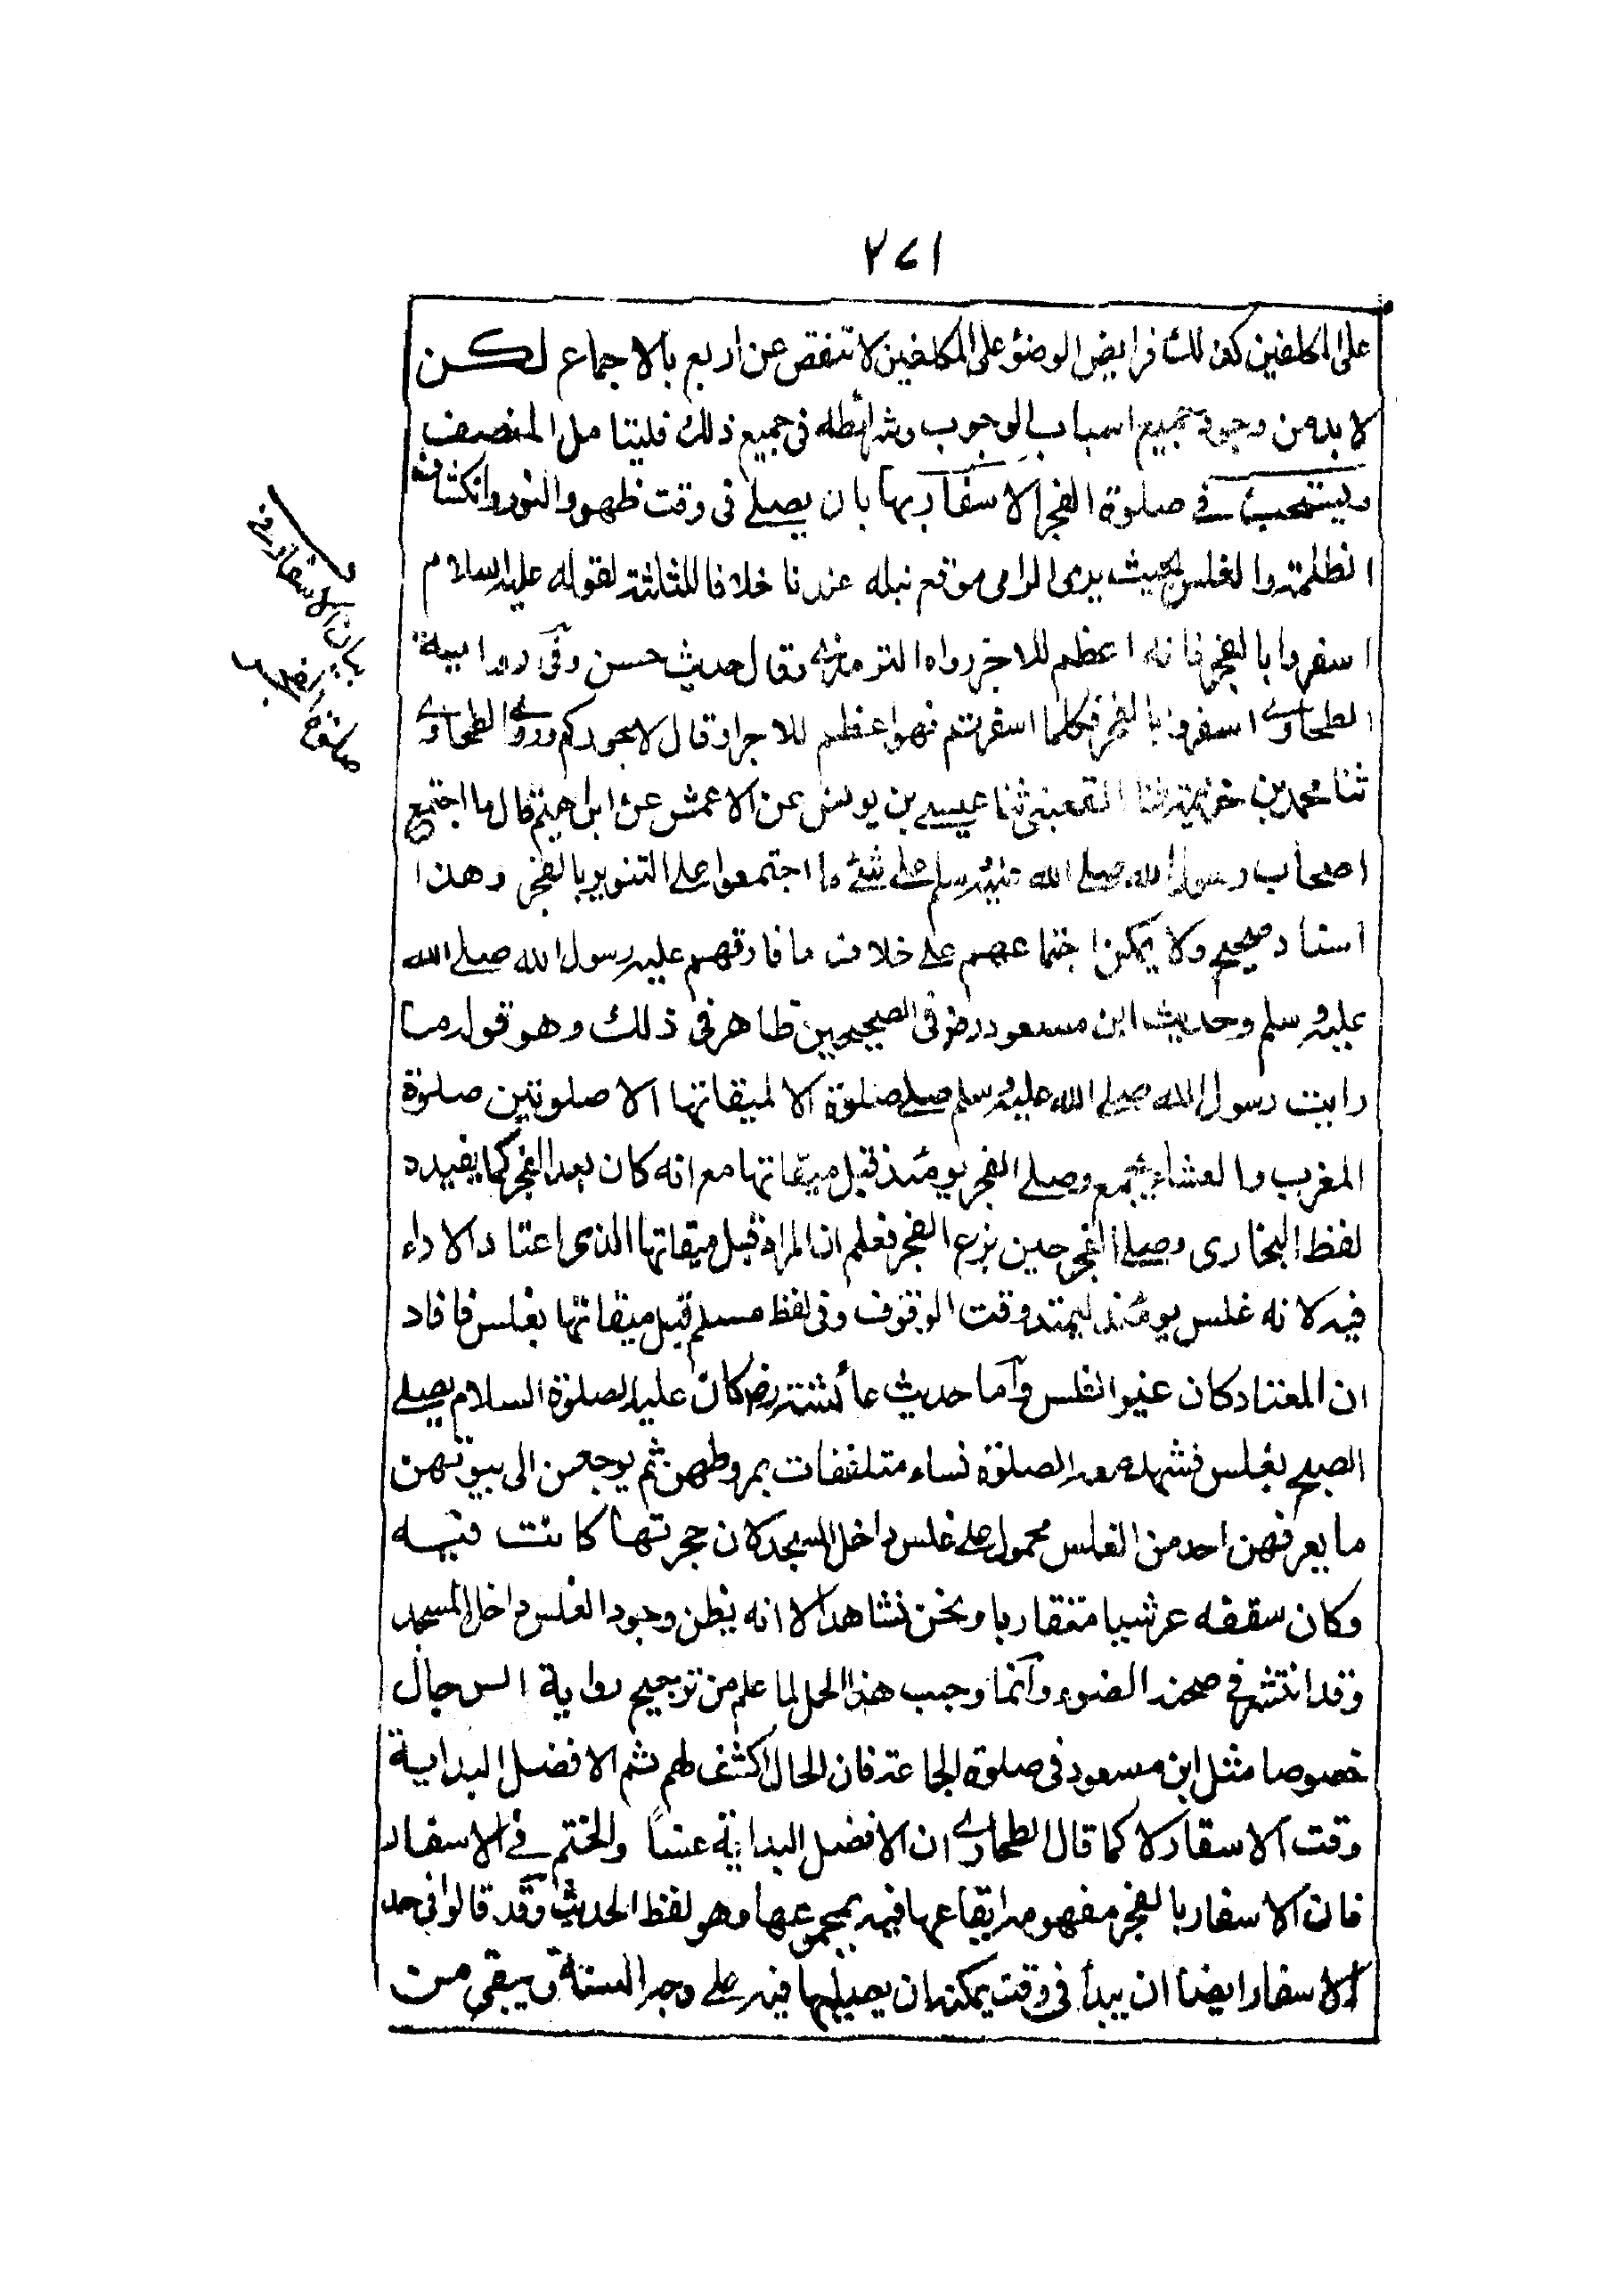 ٢٧١
على المكلفين كذلك فرايض الوضوء على المكلفين لا تنقص عن اربع بالاجماع لكن
لا بد من وجود جميع اسباب الوجوب وشرائطه فى جميع ذلك فليتامل المنصف
ويستحب فى صلوة الفجر الاسفار بها بان يصلى فى وقت ظهور النور وانكشاف
الظلمة والغلس بحيث يرى الرامى موقع نبله عندنا خلافا للثلثة لقوله عليه السلام
اسفروا بالفجر فانه اعظم للاجر رواه الترمذى وقال حديث حسن وفى رواية
الطحاوى اسفروا بالفجر فكلما اسفرتم فهو اعظم للاجر او قال لاجوركم وروى الطحاوى
ثنا محمد بن خزيمة ثنا القعنبى ثنا عيسى بن يونس عن الاعمش عن ابراهيم قال ما اجتمع
اصحاب رسول الله صلى الله عليه وسلم على شئ ما اجتمعوا على التنوير بالفجر وهذا
اسناد صحيح ولا يمكن اجتماعهم على خلاف ما فارقهم عليه رسول الله صلى الله
عليه وسلم وحديث ابن مسعود رض فى الصحيحين ظاهر فى ذلك وهو قوله ما
رايت رسول الله صلى الله عليه وسلم صلى صلوة الا لميقاتها الا صلوتين صلوة
المغرب والعشاء بجمع وصلى الفجر يومئذ قبل ميقاتها مع انه كان بعد الفجر كما يفيده
لفظ البخارى وصلى الفجر حين بزغ الفجر فعلم ان المراد قبل ميقاتها الذى اعتاد الاداء
فيه لانه غلس يومئذ ليمتد وقت الوقوف وفى لفظ مسلم قبل ميقاتها بغلس فافاد
ان المعتاد كان غير الغلس وآما حديث عائشة رض كان عليه الصلوة السلام يصلى
الصبح بغلس فشهد معه الصلوة نساء متلففات بمروطهن ثم يرجعن الى بيوتهن
ما يعرفهن احد من الغلس محمول على غلس داخل المسجد لان حجرتها كانت فيه
وكان سقفه عرشيا متقاربا ونحن نشاهد الا انه يظن وجود الغلس داخل المسجد
وقد انتشر فى صحنه الضوء وآنما وجب هذا الحمل لما علم من ترجيح رواية الرجال
خصوصا مثل ابن مسعود فى صلوة الجماعة فان الحال اكشف لهم ثم الافضل البداية
وقت الاسفار لا كما قال الطحاوى ان الافضل البداية غلسا والختم فى الاسفار
فان الاسفار بالفجر مفهومه ايقاعها فيه بمجموعها وهو لفظ الحديث وقد قالوا فى حد
الاسفار ايضا ان يبدأ فى وقت يمكنه ان يصليها فيه على وجه السنة ويبقى من
بيان الاسفار فى
صلوة الفجر